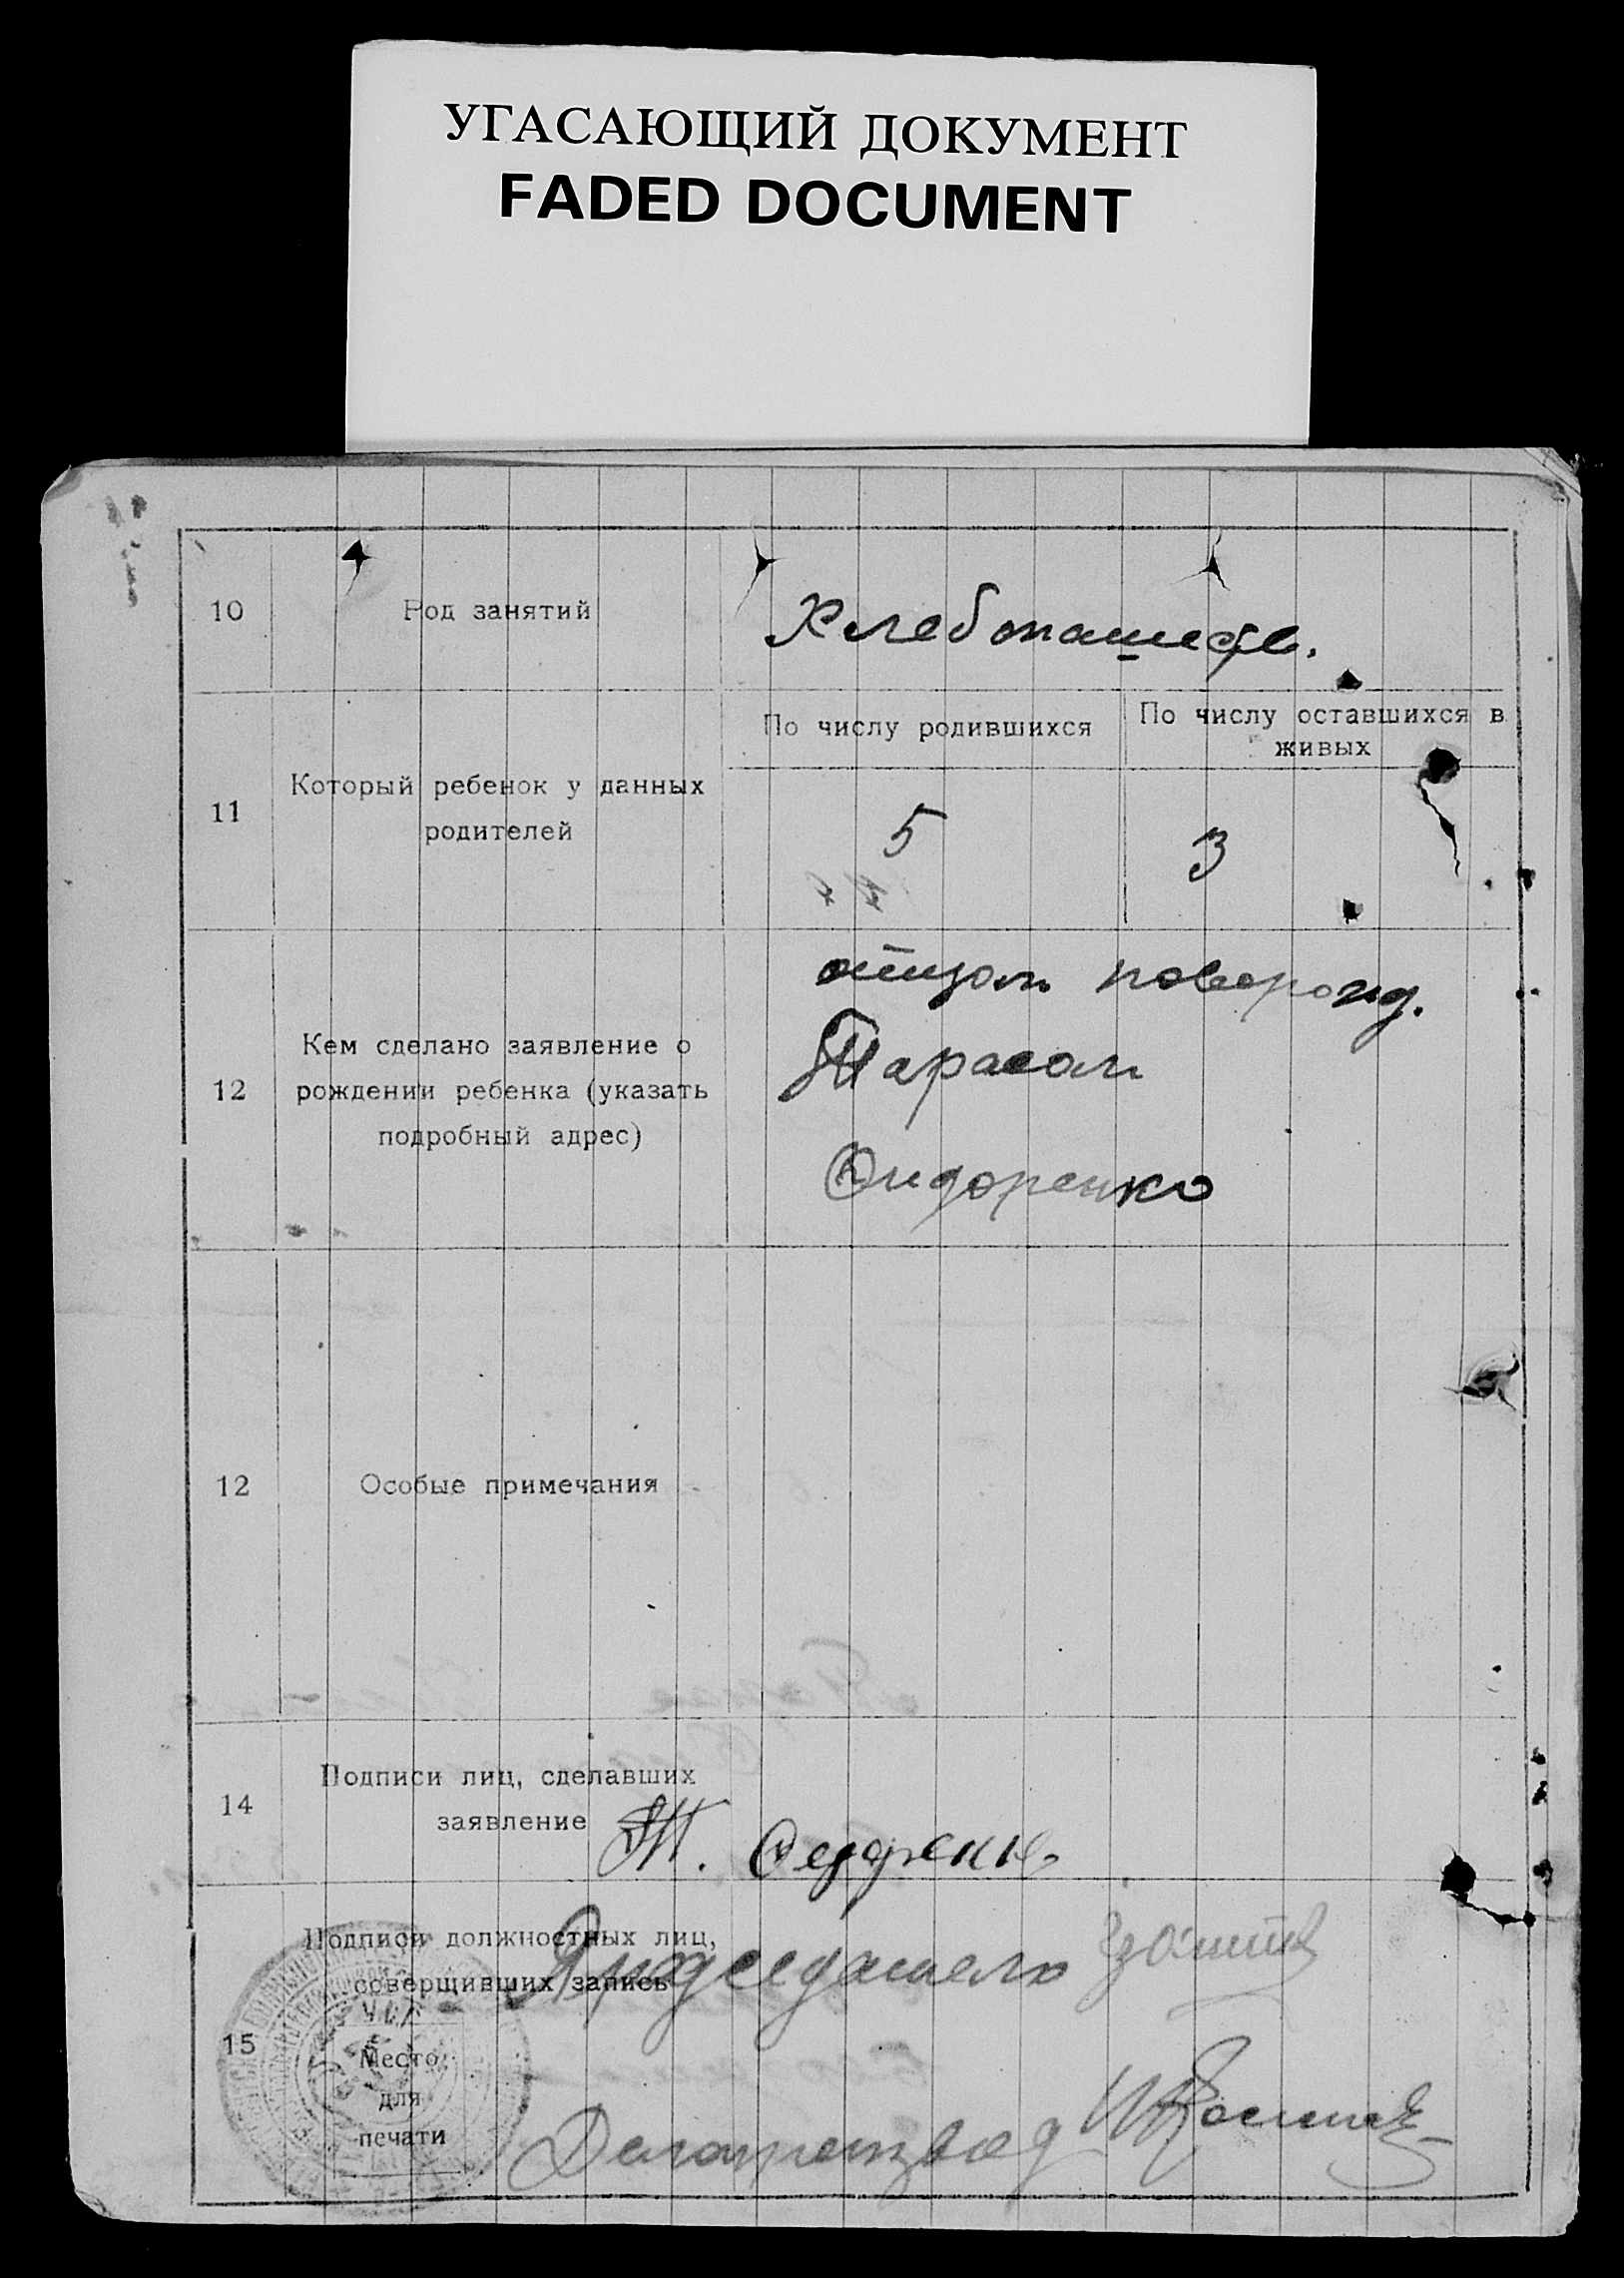 УГАСАЮЩИЙ ДОКУМЕНТ
FADED DOCUMENT
10
Род занятий
Хлебопашеств.
11
Который ребенок у данных
родителей
По числу родившихся
По числу оставшихся в
живых
5
3
12
Кем сделано заявление о
рождении ребенка (указать
подробный адрес)
отцом новорожд.
Тарасом
Сидоренко
12
Особые примечания
14
Подписи лиц, сделавших
заявление
Т. Седоренко
15
Подписи должностных лиц,
соверщивших запись
Председатель
Место
для
печати
Делопроизвод